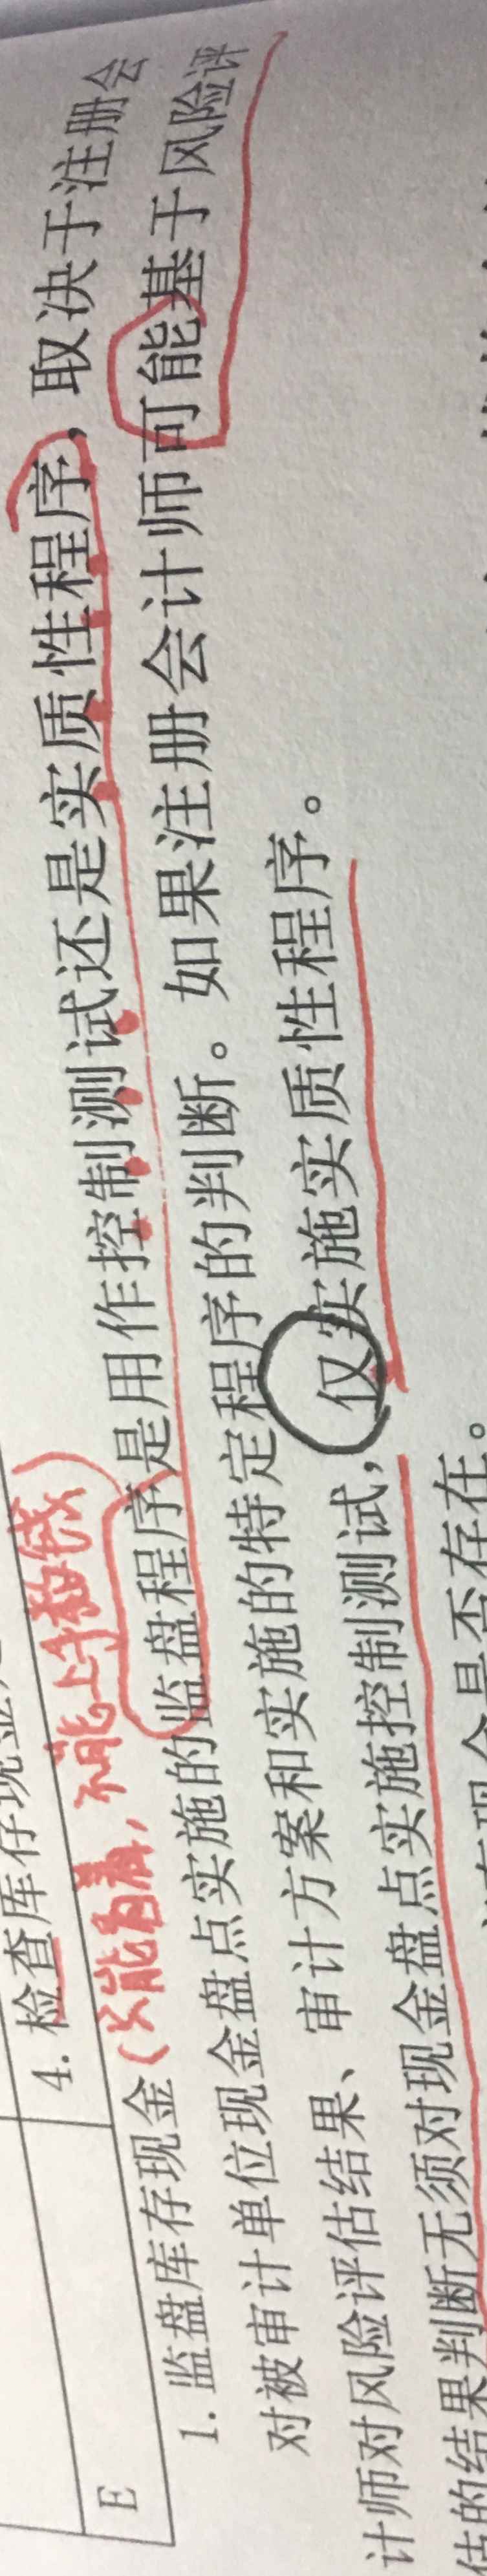 4. 检查库存现金
E
1. 监盘库存现金(只能看着,不能上手 钱)
对被审计单位现金盘点实施的监盘程序是用作控制测试还是实质性程序,取决于注册会
计师对风险评估结果、审计方案和实施的特定程序的判断。如果注册会计师可能基于风险评
估的结果判断无须对现金盘点实施控制测试,仅实施实质性程序。
现金是否存在。